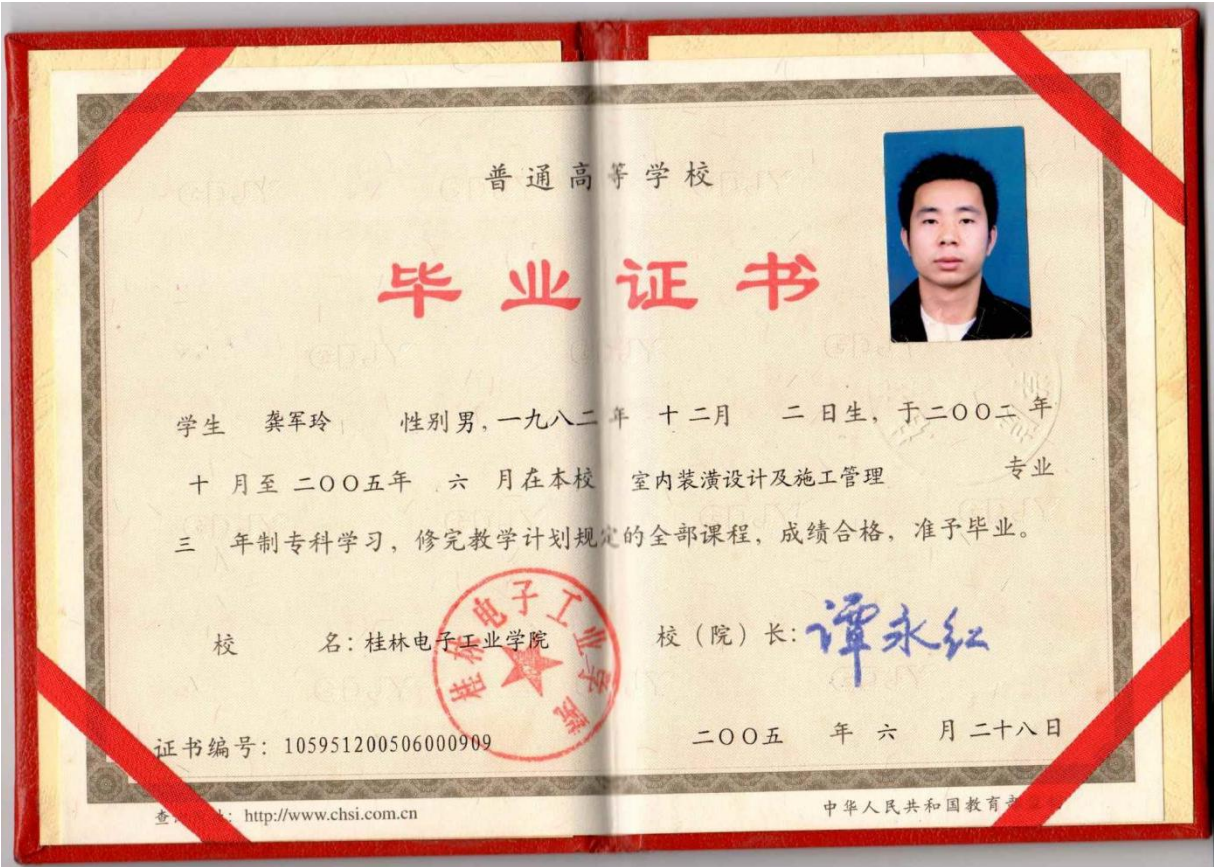 普通高等学校
毕业证书
学生 龚军玲 性别男,一九八二年 十二月 二日生,于二〇〇二年
十月至二〇〇五年 六 月在本校 室内装潢设计及施工管理 专业
三 年制专科学习,修完教学计划规定的全部课程,成绩合格,准予毕业。
校 名:桂林电子工业学院 校(院)长:谭永红
桂林电子工业学院
证书编号:105951200506000909 二〇〇五 年 六 月 二十八日
查 : http://www.chsi.com.cn 中华人民共和国教育部